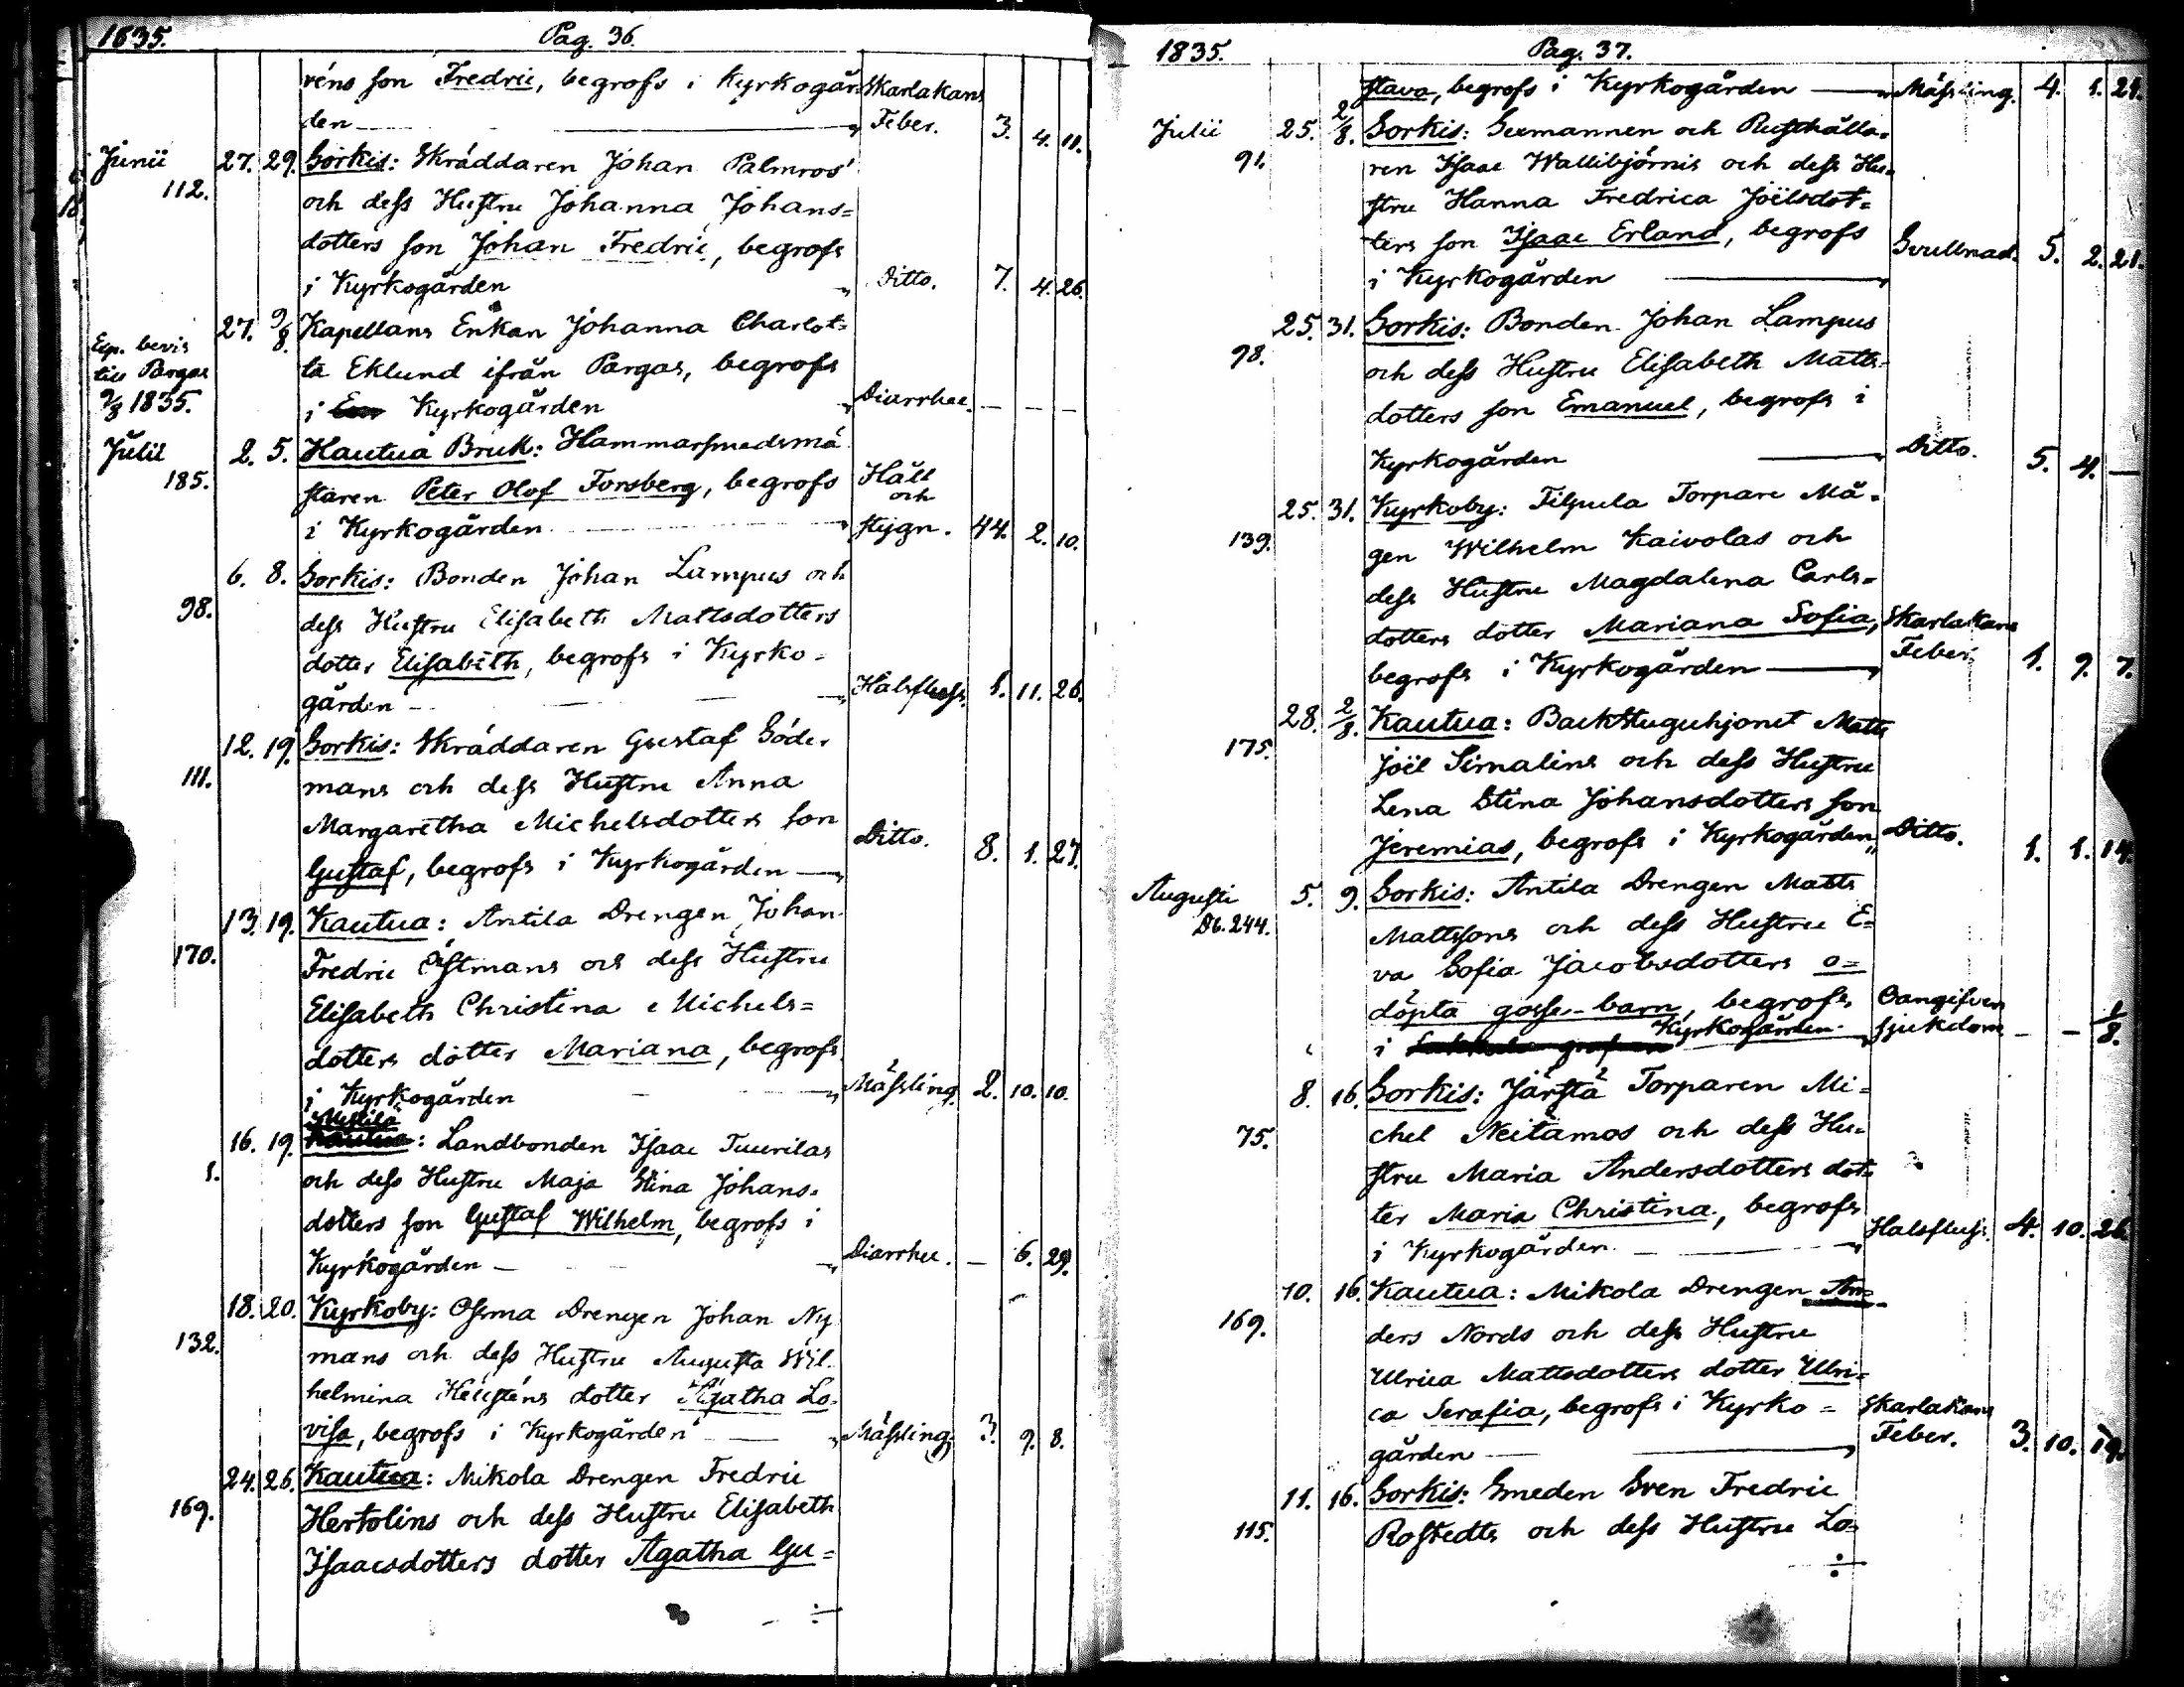 1835. Pag. 36.
réns son Fredric, begrofs i Kyrkogår= Skarlakans
den Feber. 3. 4. 11.
Junii 27. 29. Sorkis: Skräddaren Johan Palmros'
112. och dess Hustru Johanna Johans=
dotters son Johan Fredric, begrofs
i Kyrkogården Ditto. 7. 4. 26.
27. 9/8. Kapellans Enkan Johanna Charlot=
Exp. bevis
till Pargas ta Eklund ifrån Pargas, begrofs
9/8 1835. i Kyrkogården Diarrhee. — — —
Julii 2. 5. Kautua Bruk: Hammarsmedsmä
185. staren Peter Olof Forsberg, begrofs Håll
och
i Kyrkogården stygn. 44. 2. 10.
6. 8. Sorkis: Bonden Johan Lampus och
98. dess Hustru Elisabeth Mattsdotters
dotter Elisabeth, begrofs i Kyrko=
gården Halsfluss. 1. 11. 26.
12. 19. Sorkis: Skräddaren Gustaf Söder
111. mans och dess Hustru Anna
Margaretha Michelsdotters son
Gustaf, begrofs i Kyrkogården Ditto. 8. 1. 27.
13. 19. Kautua: Antila Drengen Johan
170. Fredric Östmans och dess Hustru
Elisabeth Christina Michels=
dotters dotter Mariana, begrofs
i Kyrkogården Mässling. 2. 10. 10.
16. 19. Kautua: Landbonden Isaac Tuurilas
1. och dess Hustru Maja Stina Johans=
dotters son Gustaf Wilhelm, begrofs i
Kyrkogården Diarrhee. — 6. 29.
18. 20. Kyrkoby: Osma Drengen Johan Ny
132. mans och dess Hustru Augusta Wil=
helmina dotter Agatha Lo=
visa, begrofs i Kyrkogården Mässling 3. 9. 8.
24. 26. Kautua: Mikola Drengen Fredric
169. Hertolins och dess Hustru Elisabeth
Isaacsdotters dotter Agatha Gu=
1835. Pag. 37.
stava, begrofs i Kyrkogården Mässling. 4. 1. 21.
Julii 25. 2/8. Sorkis: Sexmannen och Rusthålla=
91. ren Isaac Wallibjörnis och dess Hu=
stru Hanna Fredrica Joëlsdot=
ters son Isaac Erland, begrofs
i Kyrkogården Svullnad. 5. 2. 21.
25. 31. Sorkis: Bonden Johan Lampus
98. och dess Hustru Elisabeth Matts=
dotters son Emanuel, begrofs i
Kyrkogården Ditto. 5. 4. —
25. 31. Kyrkoby: Filpula Torpare Må=
139. gen Wilhelm Kaivolas och
dess Hustru Magdalena Carls=
dotters dotter Mariana Sofia, Skarlakans
begrofs i Kyrkogården Feber. 1. 9. 7.
28. 2/8. Kautua: Backstuguhjonet Matts
175. Joël Simalins och dess Hustru
Lena Stina Johansdotters son
Jeremias, begrofs i Kyrkogården Ditto. 1. 1. 14.
Augusti 5. 9. Sorkis: Antila Drengen Matts
Db. 244. Mattssons och dess Hustru E=
va Sofia Jacobsdotters o=
döpta gosse-barn, begrofs Oangifven
i Kyrkogården sjukdom — — 1/8.
8. 16. Sorkis: Järstä Torparen Mi=
75. chel Neitamos och dess Hu=
stru Maria Andersdotters dot=
ter Maria Christina, begrofs
i Kyrkogården Halsfluss. 4. 10. 26.
10. 16. Kautua: Mikola Drengen An=
169. ders Nords och dess Hustru
Ulrica Mattsdotters dotter Ulri=
ca Serafia, begrofs i Kyrko= Skarlakans
gården Feber. 3. 10. 19.
11. 16. Sorkis: Smeden Sven Fredric
115. Rostedts och dess Hustru Lo=